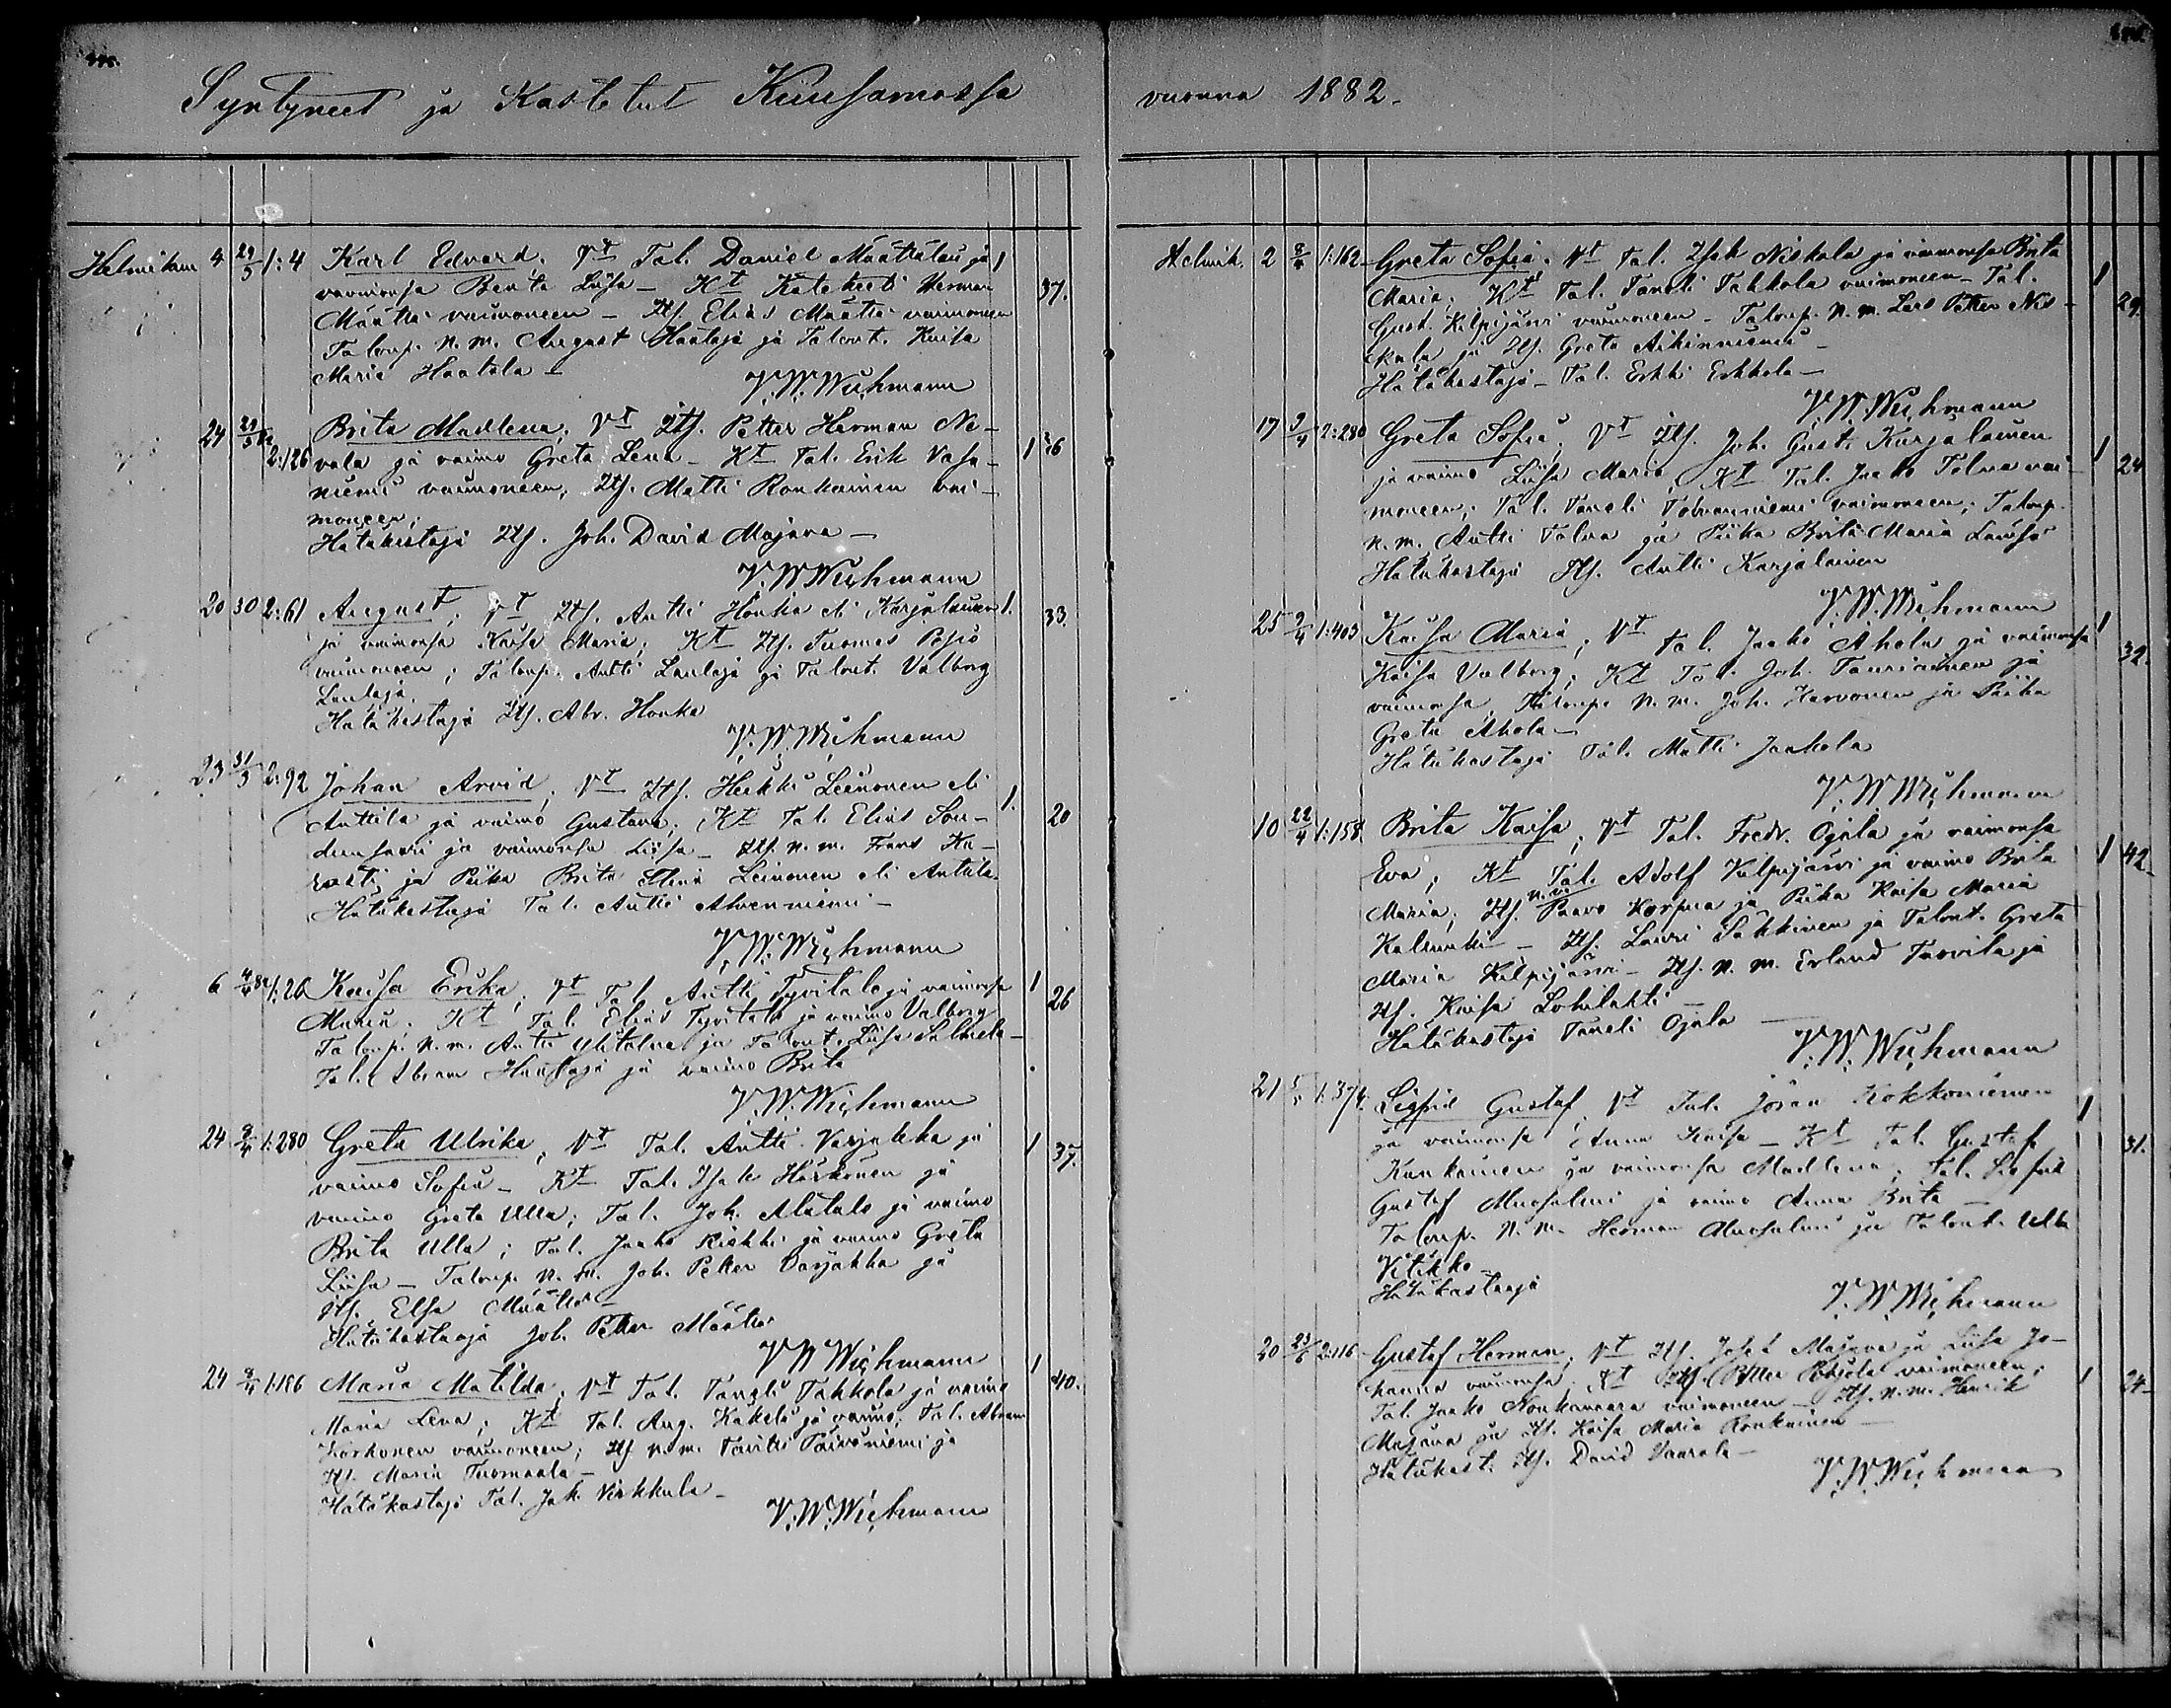 Syntyneet ja Kastetut Kuusamossa
Helmikuu 4 29/3 1:4 Karl Edvard. Vt Tal. Daniel Määttälän ja 1
vaimonsa Benta Liisa – Kt Katekeeti Herman 37.
Määttä vaimoneen – Its. Elias Määttä vaimoneen
Taloup. N.m. August Haataja ja Talont. Kaisa
Maria Haatala –
V. W. Wichmann
24 29/3 82 Brita Madlena; Vt Its. Petter Herman Ne-
2:126 vala ja vaimo Greta Lena – Kt Tal. Erik Vasa- 1 26
niemi vaimoneen, Its. Matti Ronkainen vai-
moneen;
Hätäkastaja Its. Joh. David Majava –
V. W. Wichmann
20 30 2:61 August; Vt Its. Antti Honka eli Karjalainen 1. 33.
ja vaimonsa Kaisa Maria; Kt Its. Tuomas Posio
vaimoneen; Taloup. Antti Laulaja ja Talont. Valborg
Laulaja.
Hätäkastaja Its. Abr. Honka
V. W. Wichmann
23 31/3 2:92 Johan Arvid; Vt Its. Heikki Leinonen eli 1.
Anttila ja vaimo Gustava; Kt Tal. Elias Sou- 20
densaari ja vaimonsa Liisa – Its. n.m. Frans
ja Piika Brita Leinonen eli Anttila.
Hätäkastaja Tal. Antti Ahvenniemi –
V. W. Wichmann
6 4/4 82 1:26 Kaisa Erika; Vt Tal. Antti Tyvitalo ja vaimonsa 1 26
Maria. Kt Tal. Elias Tyvitalo ja vaimo Valborg
Taloup. N.m. Antti Ylitalo ja Talont. Liisa
Tal. Abram ja vaimo Brita
V. W. Wichmann
24 8/4 1:280 Greta Ulrika; Vt Tal. Antti Varjakka ja 1 37.
vaimo Sofia – Kt Tal. Isak Härkönen ja
vaimo Greta Ulla; Tal. Joh. Alatalo ja vaimo
Brita Ulla; Tal. Jaako ja vaimo Greta
Liisa – Taloup. N.m. Joh. Petter Varjakka ja
Its. Elsa Määttä –
Hätäkastaja Joh. Petter Määttä
V. W. Wichmann
24 8/4 1:186 Maria Matilda; Vt Tal. Taneli Tahkola ja vaimo 1 40.
Maria Lena; Kt Tal. Aug. Kakelä ja vaimo; Tal. Abram
Körkönen vaimoneen; Its. n.m. Taneli Päiväniemi ja
Its. Maria Tuomaala –
Hätäkastaja Tal. Jak. Virkkula –
V. W. Wichmann
vuonna 1882.
Helmik. 2 8/4 1:162 Greta Sofia. Vt Tal. Isak Niskala ja vaimonsa Brita
Maria. Kt Tal. Taneli Tahkola vaimoneen – Tal. 1
Gust. Kilpijärvi vaimoneen – Taloup. N.m. Lars Petter Nis- 29.
kala ja Its. Greta Aikinniemi –
Hätäkastaja – Tal. Erkki Erkkola –
V. W. Wichmann
17 9/4 2:280 Greta Sofia; Vt Its. Joh. Gust. Karjalainen 1
ja vaimo Liisa Maria, Kt Tal. Jaako Tolva vai- 24
moneen; Tal. Taneli Tolvanniemi vaimoneen; Taloup.
n.m. Antti Tolva ja Piika Brita Maria
Hätäkastaja Its. Antti Karjalainen
V. W. Wichmann
25 9/4 1:403 Kaisa Maria; Vt Tal. Jaako Ahola ja vaimonsa 1 32.
Kaisa Valborg; Kt Tal. Joh. Tauriainen ja
vaimonsa, Taloup. N.m. Joh. Karvonen ja Piika
Greta Ahola –
Hätäkastaja Tal. Matti Jaakola
V. W. Wichmann
10 22/4 1:158 Brita Kaisa; Vt Tal. Fredr. Ojala ja vaimonsa
Eva; Kt Tal. Adolf Kilpijärvi ja vaimo Brita 1 42.
Maria; Its. n.m. Paavo Korpua ja Piika Kaisa Maria
– Its. Lauri Säkkinen ja Talont. Greta
Maria Kilpijärvi – Its. n.m. Erland Turvila ja
Its. Kaisa Lohilahti –
Hätäkastaja Taneli Ojala –
V. W. Wichmann
21 1:374. Sigfrid Gustaf, Vt Tal. Jöran Kokkoniemen 1
ja vaimonsa Anna Kaisa – Kt Tal. Gustaf 31.
Kunkainen ja vaimonsa Madlena; Tal. Sigfrid
Gustaf Muosalmi ja vaimo Anna Brita –
Taloup. N.m. Herman Muosalmi ja Talont. Ulla
Vitikko –
Hätäkastaja
V. W. Wichmann
20 23/6 2:116 Gustaf Herman; Vt Its. Josef Majava ja Liisa Jo-
hanna vaimonsa; Kt Its. Petter Pohjola vaimoneen; 1 24
Tal. Jaako vaimoneen – Its. n.m. Henrik
Majava ja Its. Kaisa Maria Ronkainen –
Hätäkast. Its. David Vaarala –
V. W. Wichmann